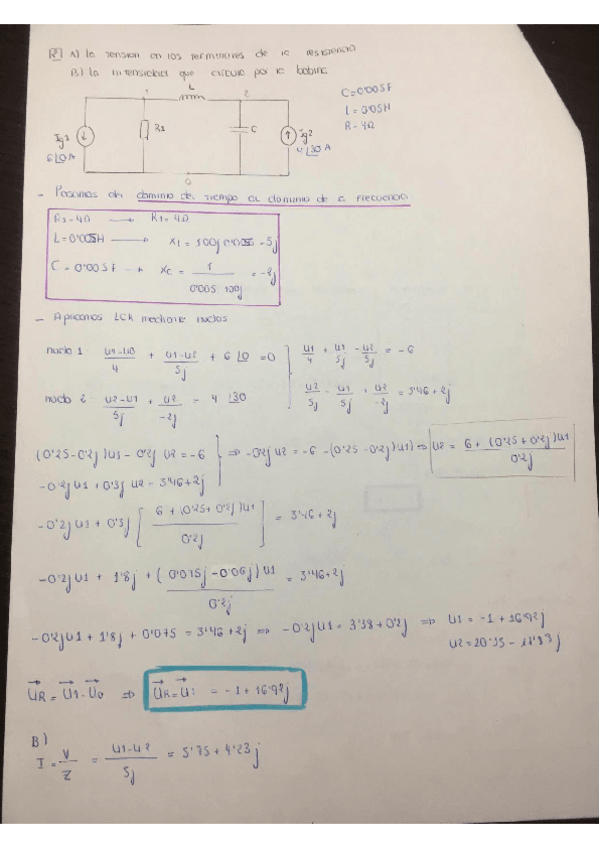 R2 A) la tension en los terminales de la resistencia
B) la intensidad que circula por la bobina
L
1 2
C=0'005F
L = 0'05H
R = 4Ω
Ig1 R1 C Ig2
6|0 A 4|30 A
0
- Pasamos del dominio del tiempo al dominio de la frecuencia
R1=4Ω → R1=4Ω
XL = 100j
C = 0'005F → Xc = 1 / 0'005 100j = -2j
- Aplicamos LCK mediante nudos
nudo 1: (U1-U0)/4 + (U1-U2)/5j + 6|0 = 0 } U1/4 + U1/5j - U2/5j = -6
nudo 2: (U2-U1)/5j + U2/-2j = 4|30 U2/5j - U1/5j + U2/-2j = 3'46+2j
(0'25-0'2j)U1 - 0'2j U2 = -6 } ⇒ -0'2j U2 = -6 -(0'25-0'2j)U1) ⇒ U2 = (6 + (0'25+0'2j)U1) / 0'2j
-0'2jU1 + 0'3j U2 = 3'46+2j
-0'2jU1 + 0'3j [ (6 + (0'25+0'2j)U1) / 0'2j ] = 3'46+2j
-0'2jU1 + 1'8j + (0'075j-0'06j)U1 / 0'2j = 3'46+2j
-0'2jU1 + 1'8j + 0'075 = 3'46+2j ⇒ -0'2jU1 = 3'38+0'2j ⇒ U1 = -1+16'92j
U2 = 20'
UR = U1-U0 ⇒ UR=U1 = -1+16'92j
B)
I = V/Z = (U1-U2)/5j = 5'75+4'23j